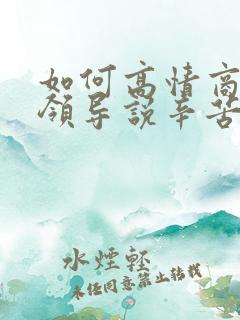 如何高情商
领导说辛苦
水煙輕
未经同意禁止转载